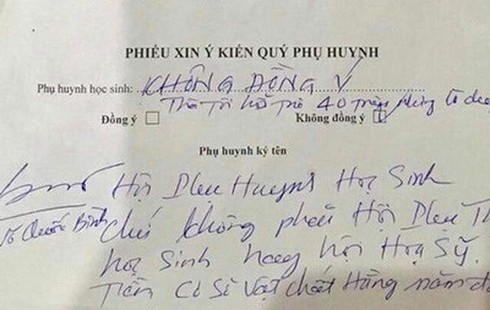 PHIẾU XIN Ý KIẾN QUÝ PHỤ HUYNH
Phụ huynh học sinh: KHÔNG ĐỒNG Ý
Tôi hỗ trợ 40 triệu
Đồng ý ☐ Không đồng ý ☐
Phụ huynh ký tên
Hội Phụ Huynh Học Sinh
Quốc Bình chứ không phải Hội Phụ
học Sinh hay hội Hoạ Sỹ.
Tiền Cơ Sở Vật chất Hằng năm